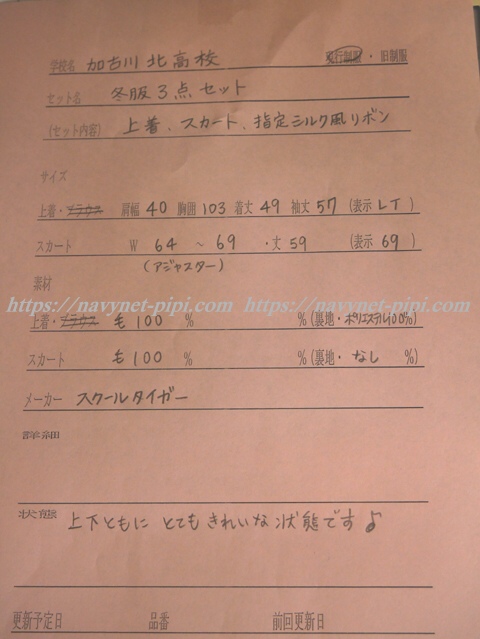 学校名 加古川北高校 現行制服・旧制服
セット名 冬服3点セット
(セット内容) 上着、スカート、指定ミルク風リボン
サイズ
上着・ブラウス 肩幅 40 胸囲 103 着丈 49 袖丈 57 (表示 LT )
スカート W 64 ～ 69 ・丈 59 (表示 69 )
(アジャスター)
素材
https://navynet-pipi.com/ https://navynet-pipi.com/
上着・ブラウス 毛 100 % %(裏地・ポリエステル100%)
スカート 毛 100 % %(裏地・なし %)
メーカー スクールタイガー
詳細
状態 上下ともに とてもきれいな状態です♪
更新予定日 品番 前回更新日